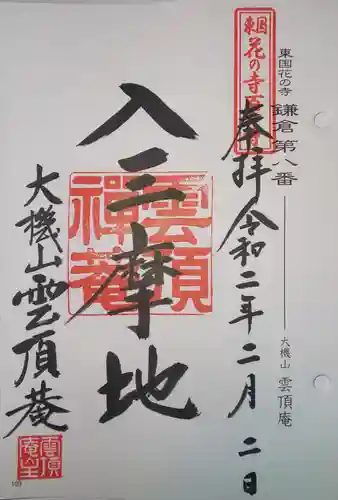 東国花の寺 鎌倉第八番
大機山 雲頂庵
奉拝 令和二年二月二日
入三摩地
雲頂禅菴
大機山雲頂菴
雲頂菴主
109